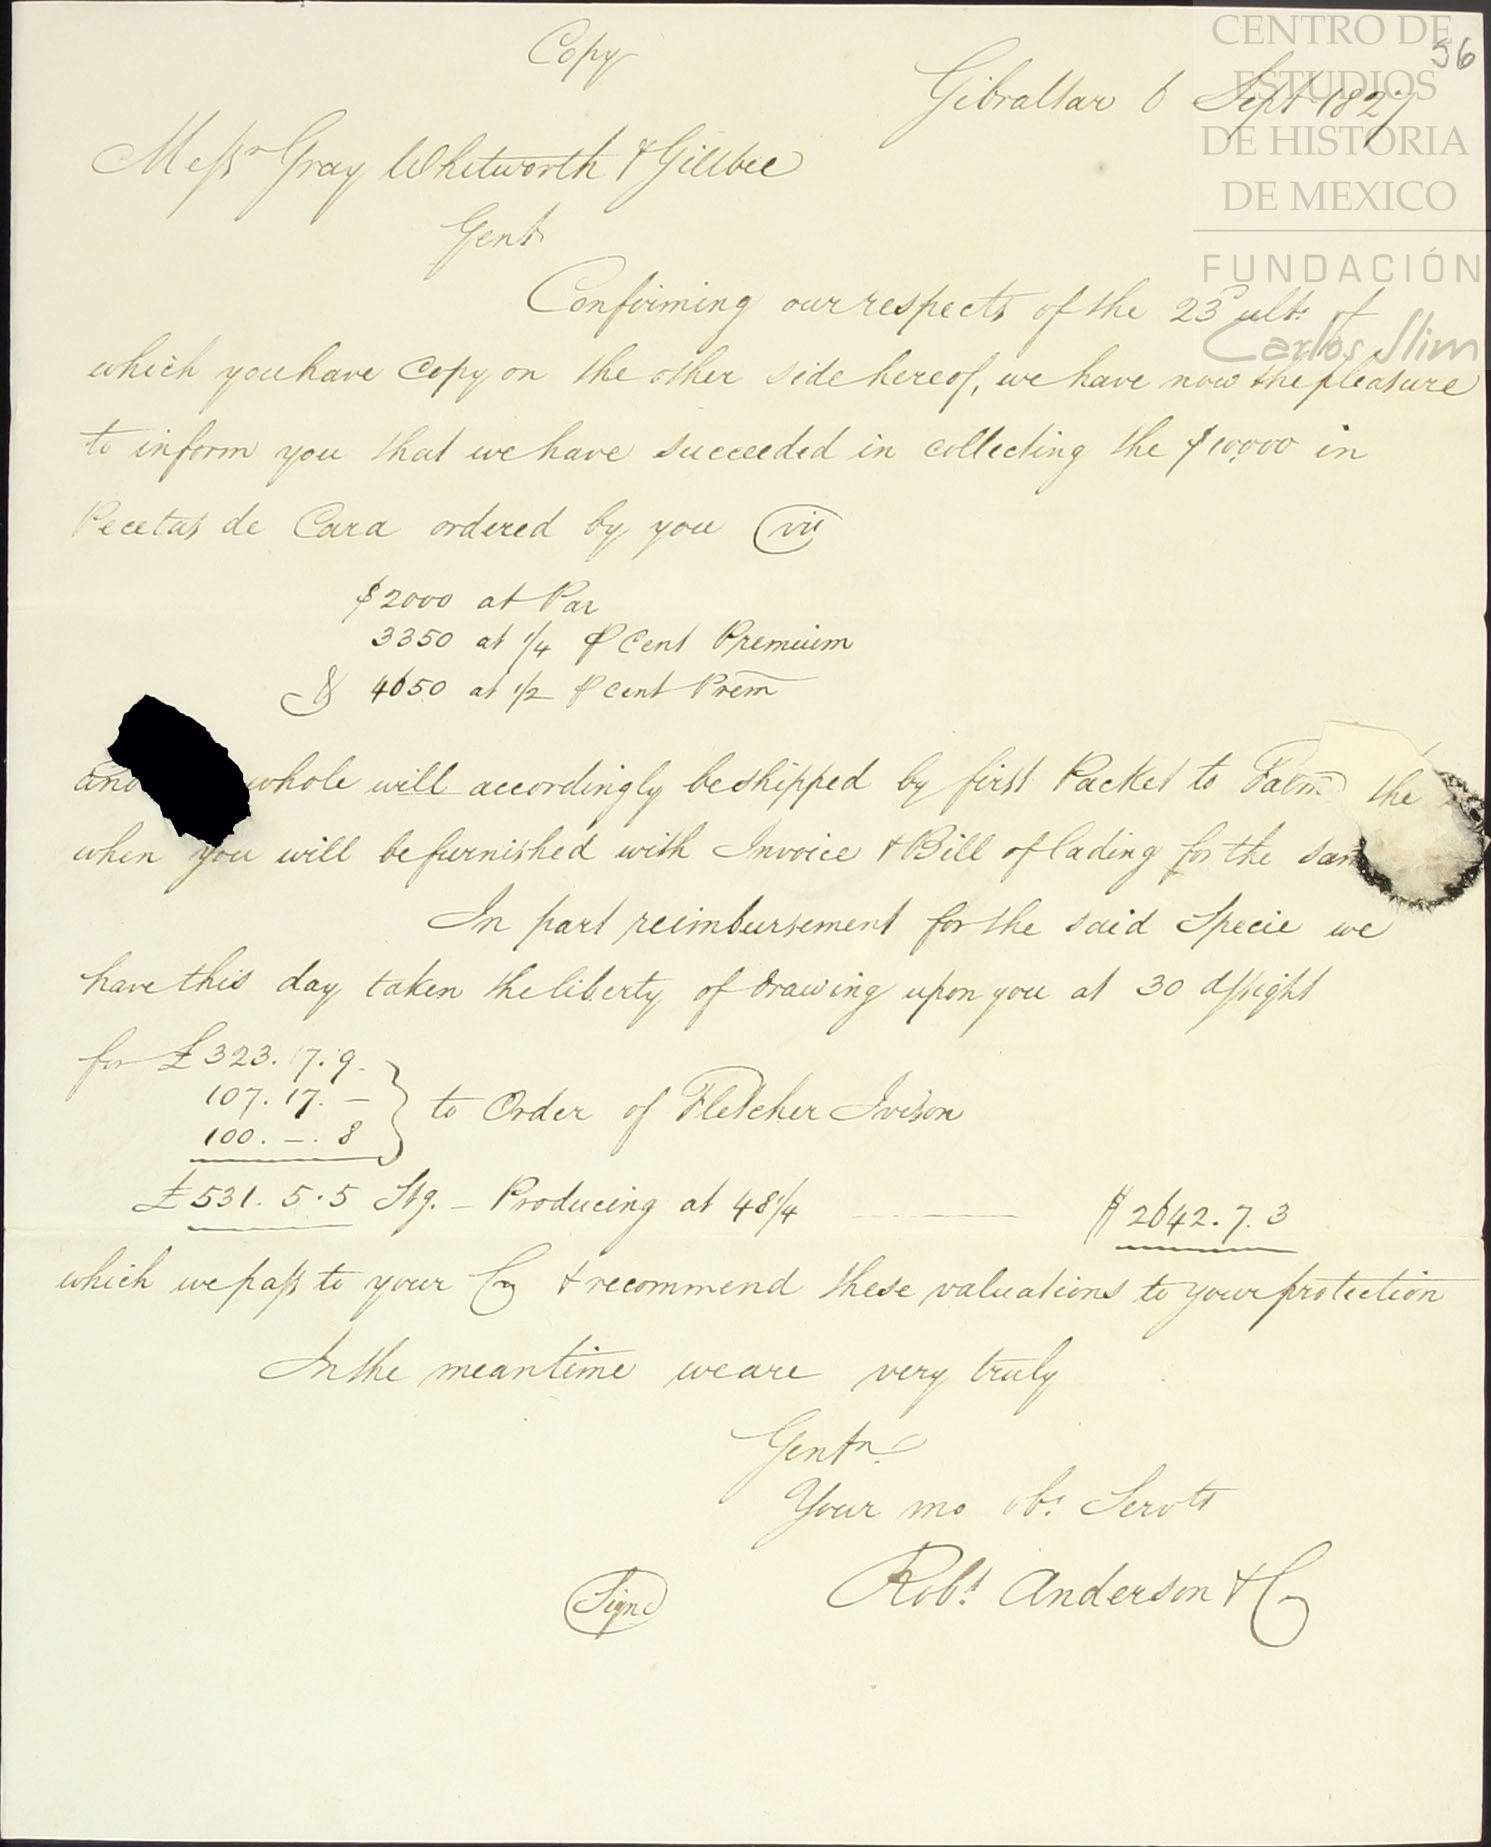 Copy
56
Gibraltar 6 Sept 1827
Messrs Gray Whitworth & Gillbee
Gent
Confirming our respects of the 23d ulto. of
which you have Copy on the other side hereof, we have now the pleasure
to inform you that we have succeeded in collecting the $10,000 in
Pecetas de Cara ordered by you viz
$2000 at Par
3350 at 1/4 ⅌ Cent Premium
& 4650 at 1/2 ⅌ Cent Prem
and whole will accordingly be shipped by first Packet to Falmo the
when you will be furnished with Invoice & Bill of lading for the sam
In part reimbursement for the said Specie we
have this day taken the liberty of drawing upon you at 30 d/sight
for £323. 7. 9.
107. 17. —
100. —. 8
} to Order of Fletcher Ivison
£531. 5. 5 Stg. — Producing at 48 1/4 $2642. 7. 3
which we pass to your Co & recommend these valuations to your protection
In the meantime we are very truly
Gentn.
Your mo obt. Servts
(Signd) Robt. Anderson & Co
CENTRO DE
ESTUDIOS
DE HISTORIA
DE MEXICO
FUNDACIÓN
Carlos Slim